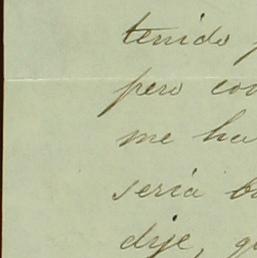 tenido
pero
me ha
sería
dije,